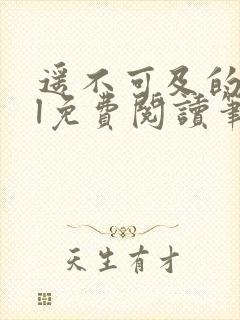 遥不可及的
1免費閱讀筆
天生有才